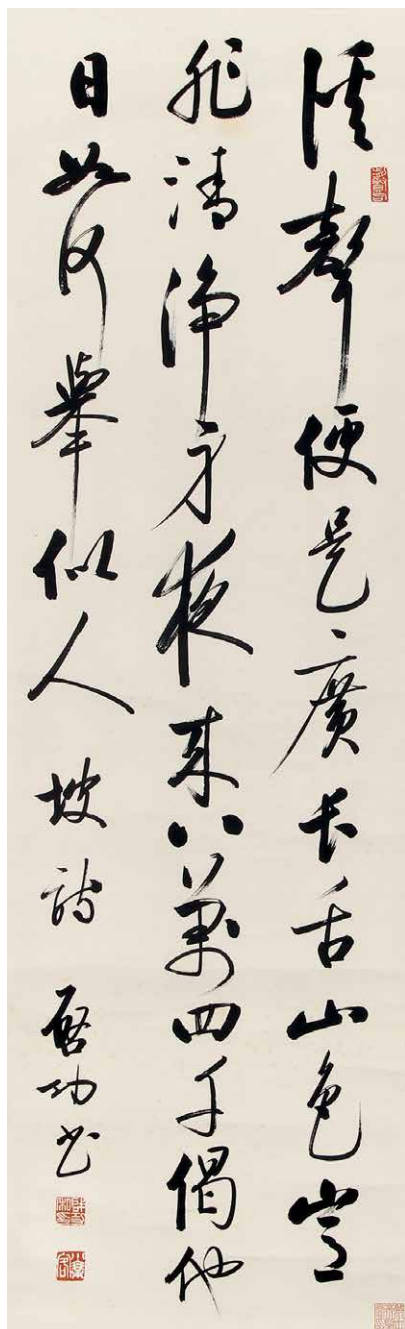 溪聲便是廣长舌山色豈
非清净身夜来八万四千偈他
日如何舉似人 坡詩 啓功书